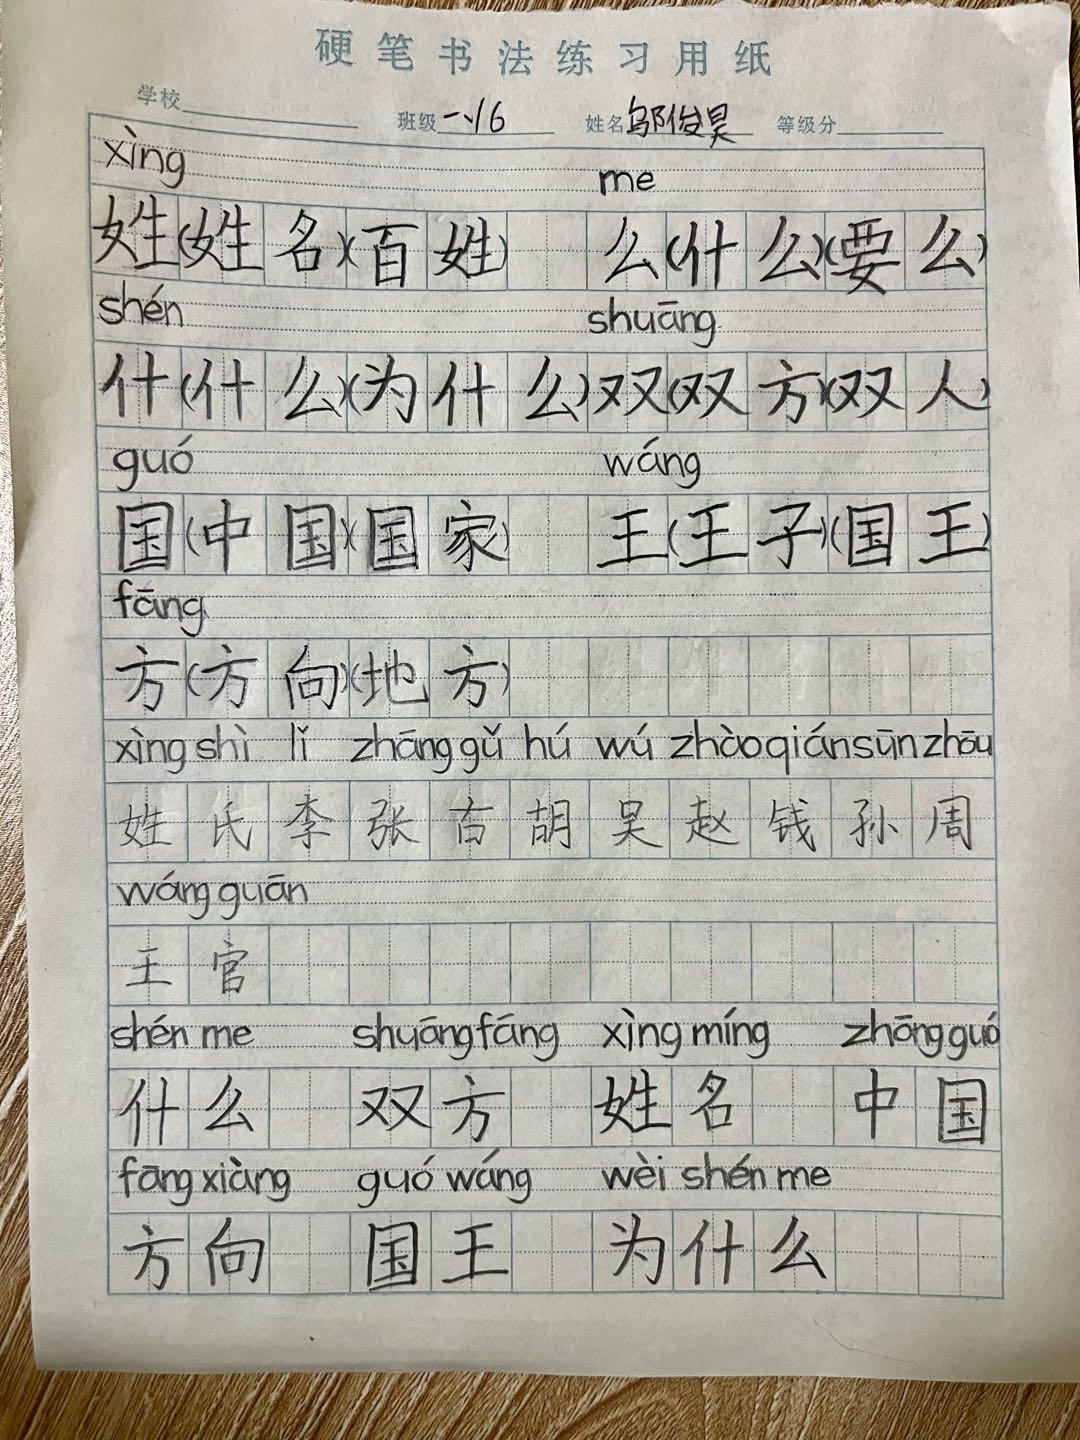 硬笔书法练习用纸
学校 班级 一、16 姓名 邬俊昊 等级分
xìng me
姓(姓名)(百姓) 么(什么)(要么)
shén shuāng
什(什么)(为什么) 双(双方)(双人)
guó wáng
国(中国)(国家) 王(王子)(国王)
fāng
方(方向)(地方)
xìng shì lǐ zhāng gǔ hú wú zhào qián sūn zhōu
姓氏李张古胡吴赵钱孙周
wáng guān
王官
shén me shuāng fāng xìng míng zhōng guó
什么 双方 姓名 中国
fāng xiàng guó wáng wèi shén me
方向 国王 为什么